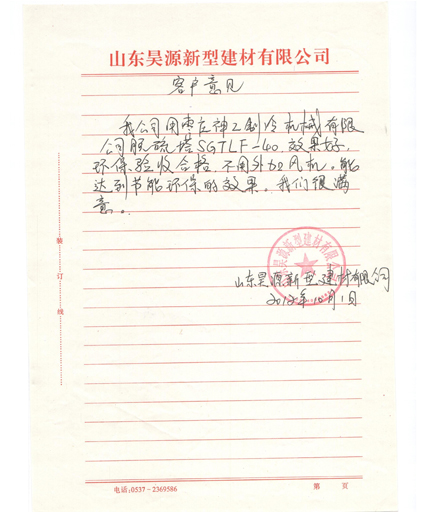 山东昊源新型建材有限公司
客户意见
我公司用枣庄神工制冷机械有限
公司脱硫塔SGTLF-40.效果好,
环保验收合格.不用外加风机.能
达到节能环保的效果。我们很满
意。
昊源新型建材有限公
山东昊源新型建材有限公司
2012年10月1日
装
订
线
电话:0537-2369586
第 页